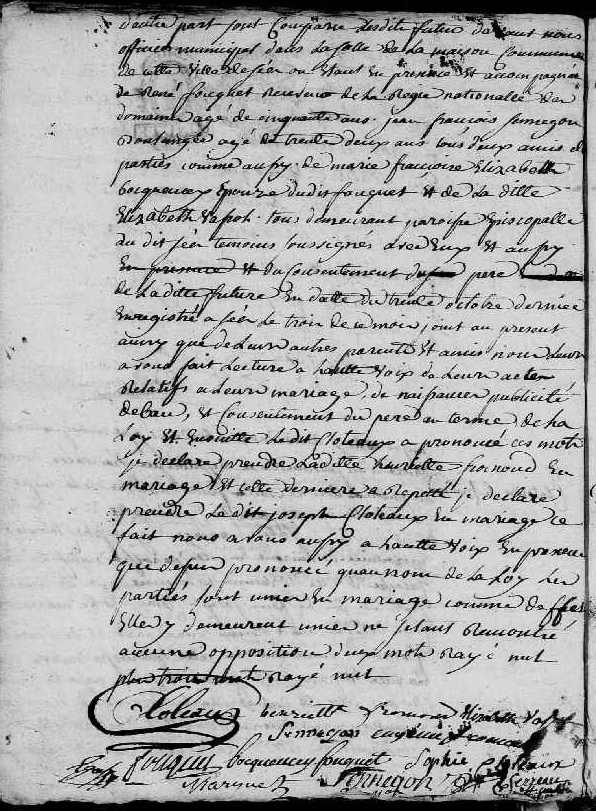 d'autre part sont Comparu lesdits futur devant nous
officier municipal dans La salle de La maison Commune
de cette ville de Sées ou Etant En presence Et accompagnée
de René fouquet Receveur de La Regie nationalle des
domaine agé de cinquante ans. jean francois Sennegon
Boulanger agé de trente deux ans tous deux amis des
parties comme aussy de marie francoise Elizabeth
bocquencey Epouze du dit fouquet Et de La dille
Elizabeth Vapoh. tous demeurant paroisse Episcopalle
du dit Sées temoins soussignés avec Eux Et aussy
En presence Et du Consentement du pere
de Laditte future En datte du trente octobre dernier
Enregistré a Sées Le trois de ce mois joint au present
aussy que de Leurs autres parents Et amis nous Leurs
avons fait Lecture a hautte voix de Leurs actes
Relatifs a Leurs mariage, de naissance publicité
de bans, Et Consentement du pere au terme de La
Loy Et Ensuitte Ledit Cloteaux a prononcé ces mots
je declare prendre Laditte henriette fromond En
mariage Et cette derniere a Repetté je declare
prendre Le dit joseph Cloteaux En mariage ce
fait nous avons aussy a hautte voix En presence
que dessus prononcé qu'au nom de La Loy Les
parties sont unies En mariage comme de effet
Elle y demeurent unies ne s'etant Rencontré
aucune opposition deux mots Rayé nuls
plus trois mots Rayé nuls
henriette fromond Elizabeth
Sennegon
fouquet bocquencey fouquet Sophie
Sennegon